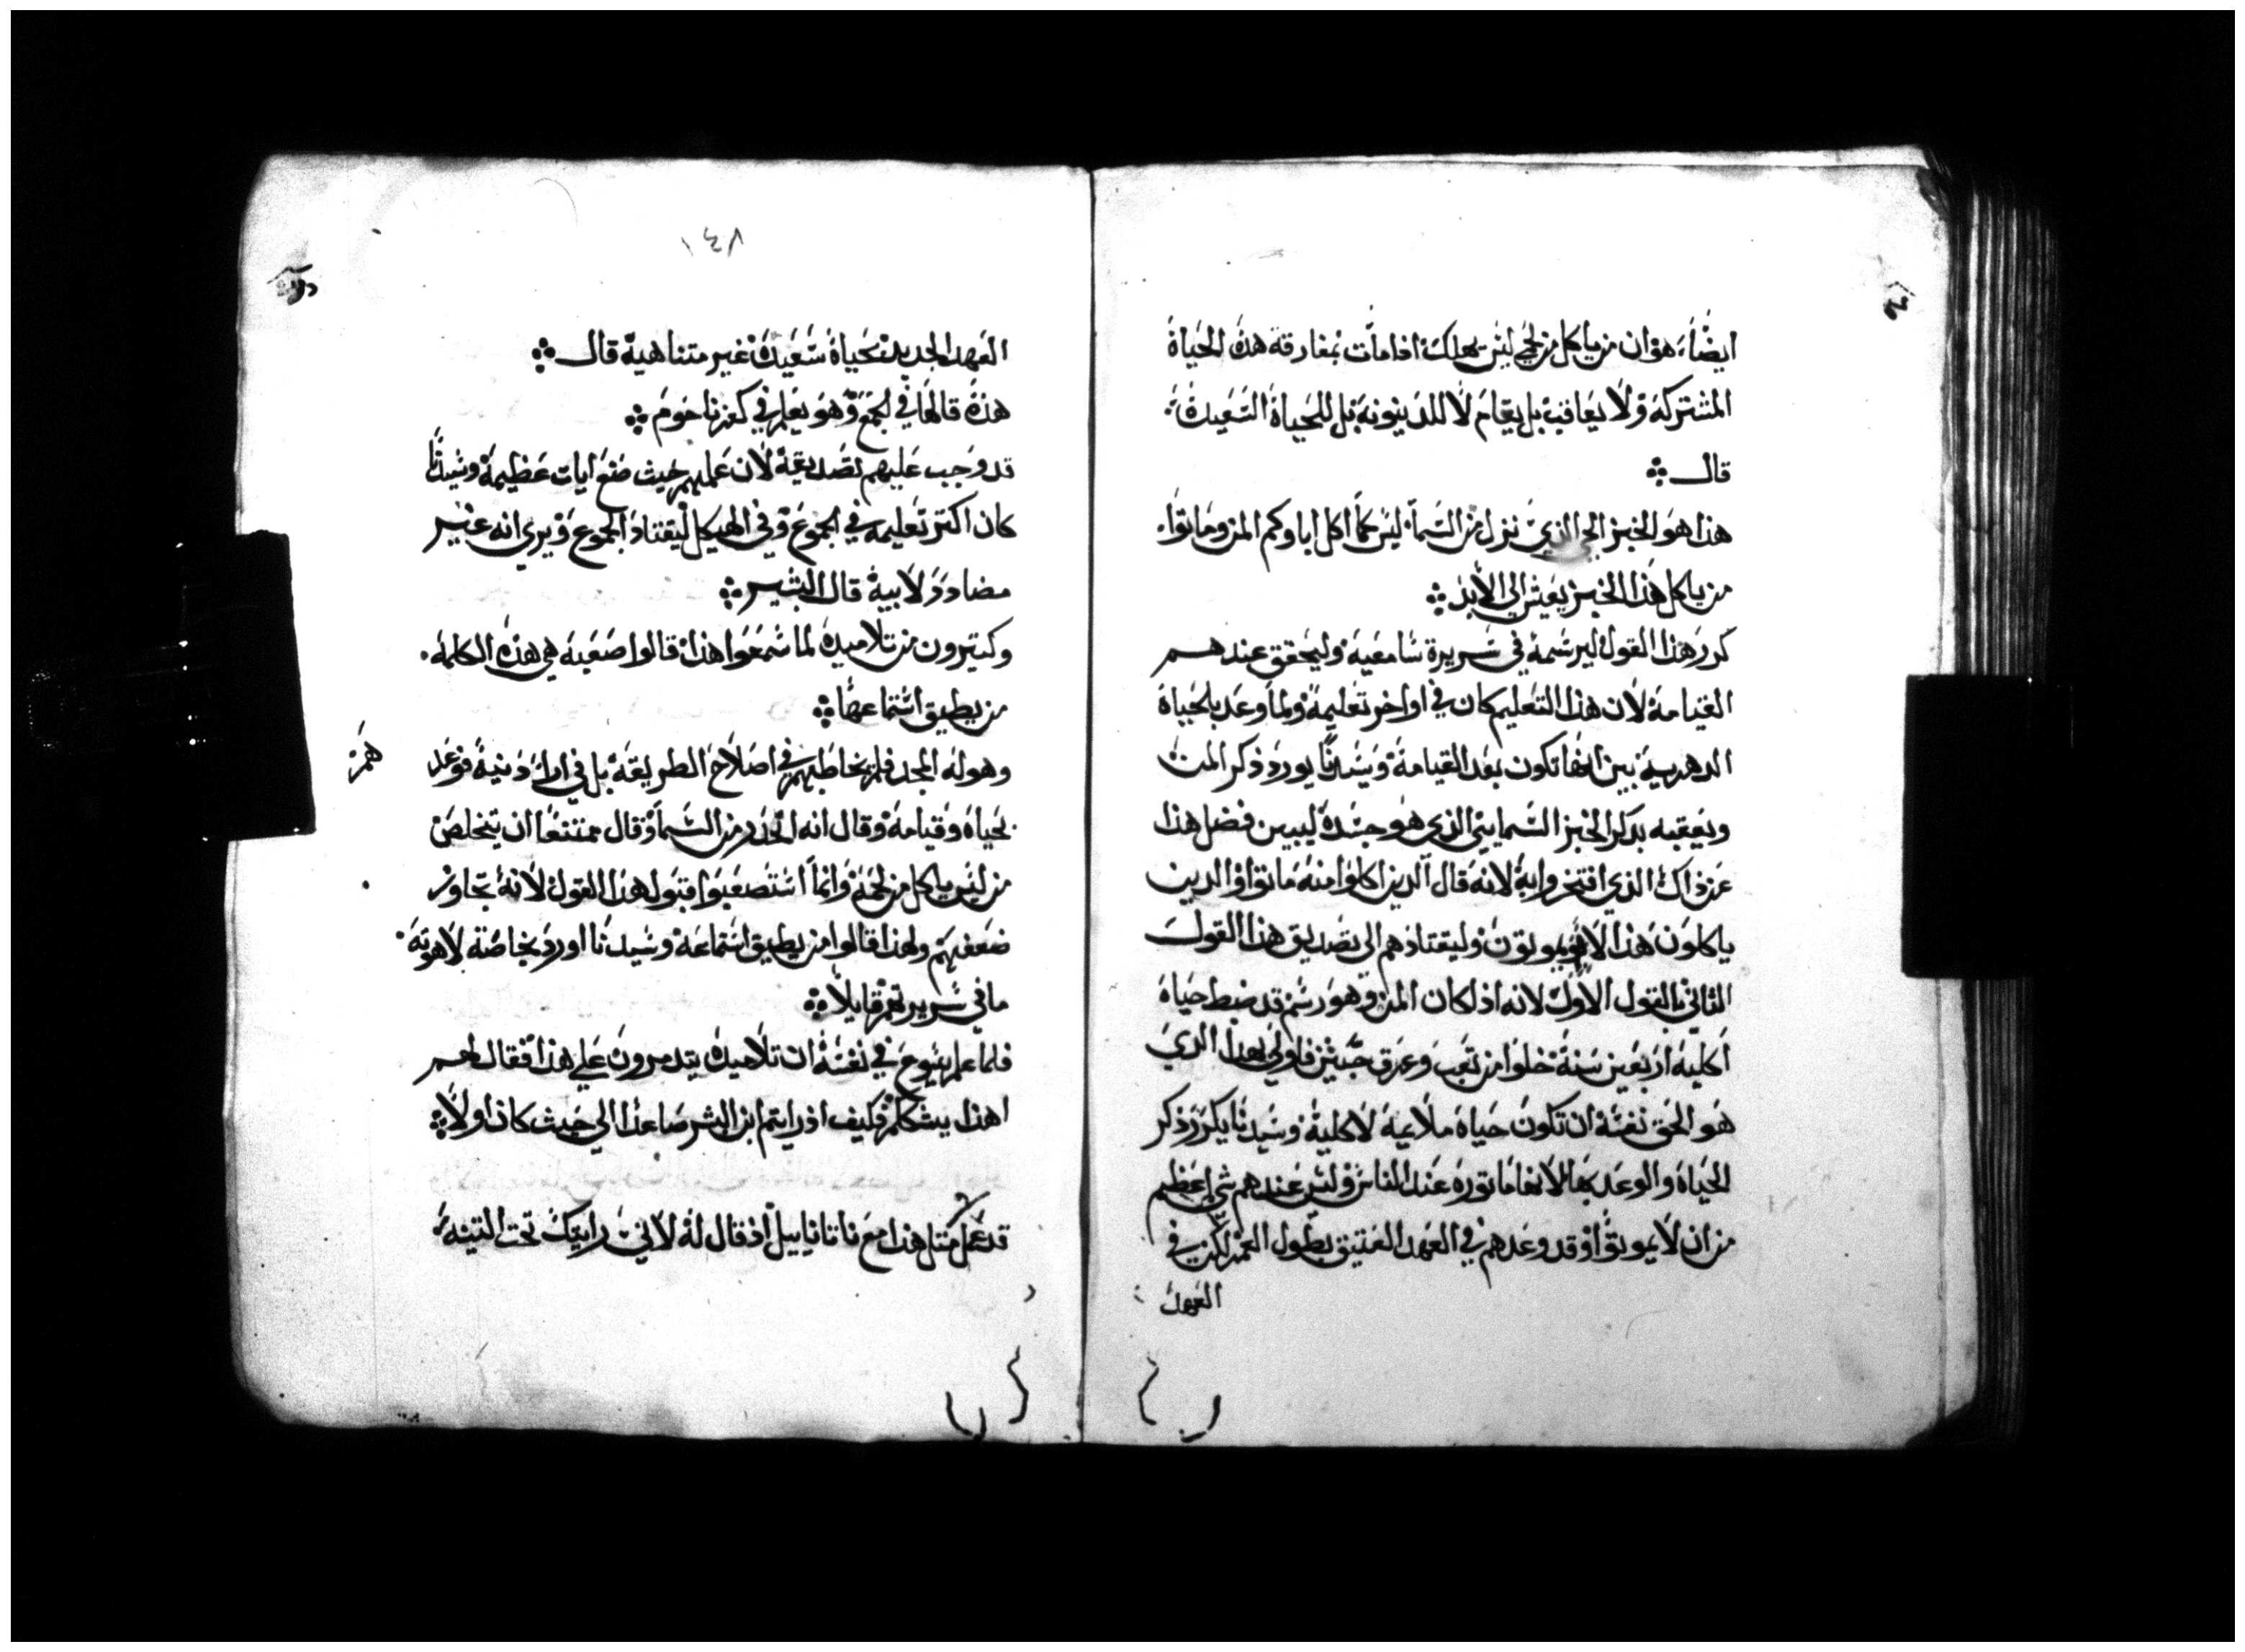 ايضًا هو ان من ياكل من لحمي ليس يهلك اذا مات بمفارقة هذه الحياة
المشتركة ولا يعاقب بل يقام لا للدينونة بل للحياة السعيدة
قال
هذا هو الخبز الحي الذي نزل من السما ليس كما اكل اباوكم المن وماتوا
من ياكل هذا الخبز يعيش الي الابد
كرر هذا القول ليرسمه في سريرة سامعيه وليحقق عندهم
القيامة لان هذا التعليم كان في اواخر تعليمه ولما وعد بالحياة
الدهرية بين انها تكون بعد القيامة وسيدنا يورد ذكر المن
ويعقبه بذكر الخبز السمايي الذي هو جسده ليبين فضل هذا
عن ذاك الذي افتخروا به لانه قال الذين اكلوا منه ماتوا والذين
ياكلون هذا لا يموتون وليقتادهم الي تصديق هذا القول
الثاني بالقول الاول لانه اذا كان المن وهو رسم قد ضبط حياة
اكليه اربعين سنة خلوا من تعب وعرق جبين فاولي بهذا الذي
هو الحق نفسه ان تكون حياة ملايمة لاكليه وسيدنا يكرر ذكر
الحياة والوعد بها لانها ماتوره عند الناس وليس عندهم شي اعظم
من ان لا يموتوا وقد وعدهم في العهد العتيق بطول العمر لكن في
العهد
١٤٨
العهد الجديد بحياة سعيدة غير متناهية قال
هذه قالها في الجمع وهو يعلم في كفرناحوم
قد وجب عليهم تصديقه لان عملهم حيث صنع ايات عظيمة وسيدنا
كان اكتر تعليمه في الجموع وفي الهيكل ليقتاد الجموع ويري انه غير
مضادد لابيه قال البشير
وكتيرون من تلاميده لما سمعوا هذا قالوا صعبه هي هذه الكلمه
من يطيق استماعها
وهو له المجد فلم يخاطبهم في اصلاح الطريقة بل في ارا دينية فوعد
بحياة وقيامة وقال انه انحدر من السما وقال ممتنعًا ان يتخلص
من ليس ياكل من لحمه وانما استصعبوا قبول هذا القول لانه تجاوز
ضعفهم ولهذا قالوا من يطيق استماعه وسيدنا اورد بخاصة لاهوته
ما في سريرتهم قايلا
فلما علم يسوع في نفسه ان تلاميده يتدمرون علي هذا فقال لهم
اهذا يشككم فكيف اذ رايتم ابن البشر صاعدا الي حيث كان اولا
قد عمل متل هذا مع ناتانابيل اذ قال له لاني رايتك تحت التينه